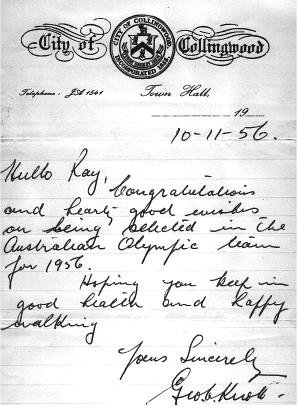 City of Collingwood
CITY OF COLLINGWOOD
INCORPORATED
Telephone: JA 1541 Town Hall,
19
10-11-56.
Hullo Ray,
Congratulations
and hearty good wishes
on being selected in the
Australian Olympic team
for 1956.
Hoping you keep in
good health and happy
walking
Yours Sincerely
Geo. Knott.